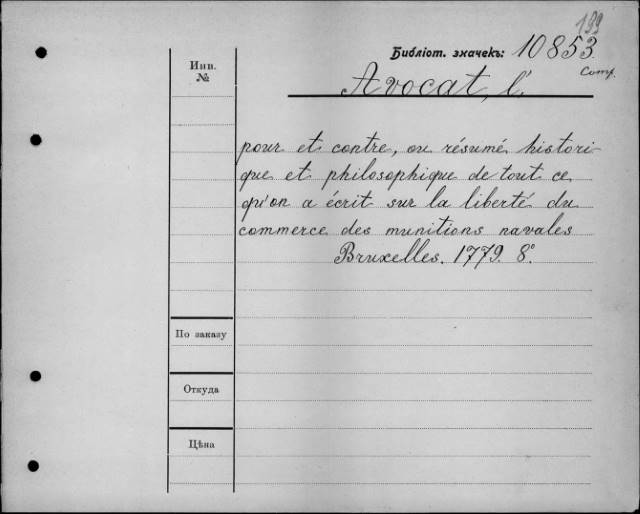 199
Библіот. значекъ: 10853
Comp.
Инв.
№
Avocat, l'
pour et contre, ou résumé histori-
que et philosophique de tout ce
qu'on a écrit sur la liberté du
commerce des munitions navales
Bruxelles. 1779. 8º
По заказу
Откуда
Цѣна